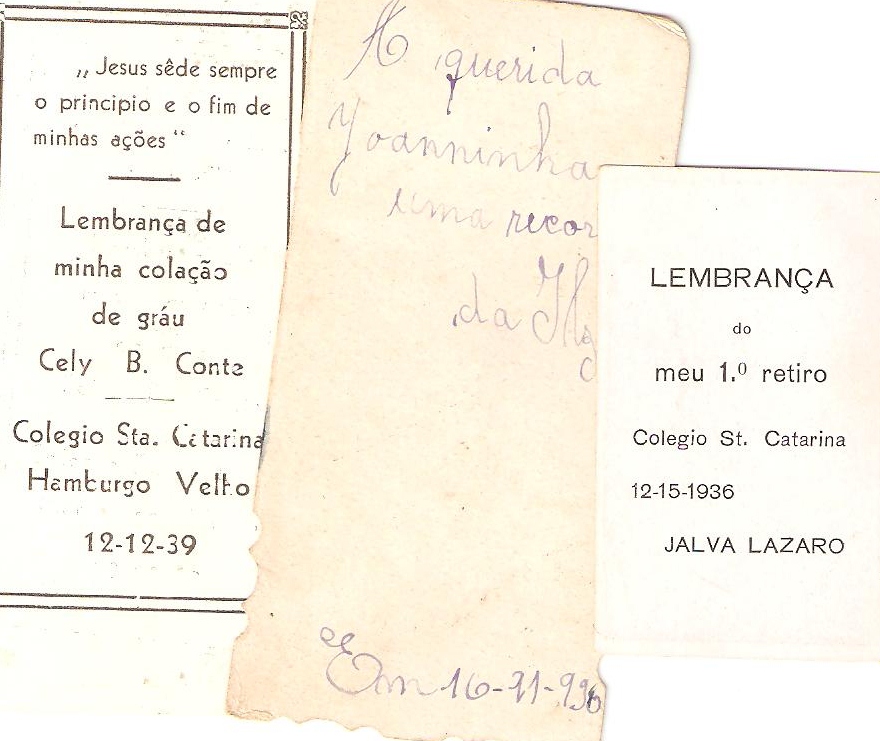 „Jesus sêde sempre
o principio e o fim de
minhas ações“
Lembrança de
minha colação
de gráu
Cely B. Conte
Colegio Sta. Catarina
Hamburgo Velho
12-12-39
A querida
Yoanninha
uma recor
da
Em 16-11-936
LEMBRANÇA
do
meu 1.º retiro
Colegio St. Catarina
12-15-1936
JALVA LAZARO